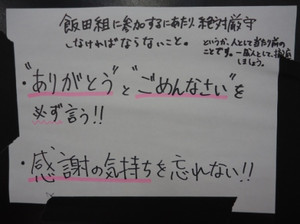 飯田組に参加するにあたり、絶対厳守
しなければならないこと。
というか、人として当たり前の
ことです。一座人として、頑張り
ましょう。
・"ありがとう"と"ごめんなさい"を
必ず言う!!
・感謝の気持ちを忘れない!!